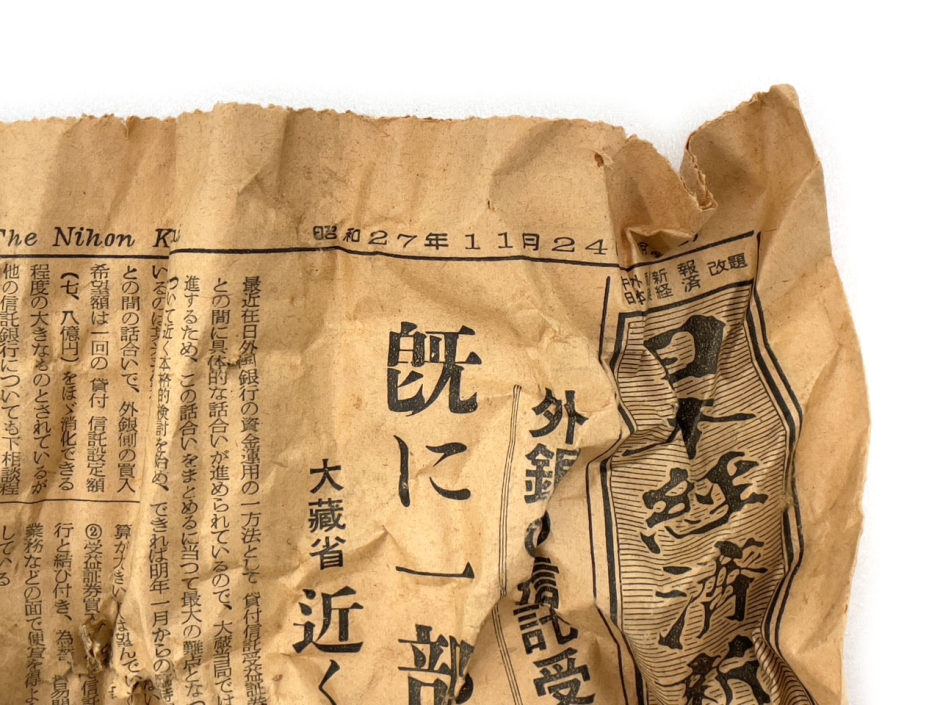 The Nihon K
昭和27年11月24
中外 新報 改題
日本 経済
日本経済新
外銀の信託受
既に一部
大蔵省
近く
最近在日外国銀行の資金運用の一方法として貸付信託受益証
との間に具体的な話合いが進められているので、大蔵当局では
進するため、この話合いをまとめるに当つて最大の難点とな
ついて近く本格的検討を始め、できれば明年一月からの
との間の話合いで、外銀側の買入
希望額は一回の貸付信託設定額
(七、八億円)をほゞ消化できる
程度の大きなものとされているが
他の信託銀行についても下相談程
算が大きい
②受益証券買
行と結び付き、為替、貿易
業務などの面で便宜を得よ
している